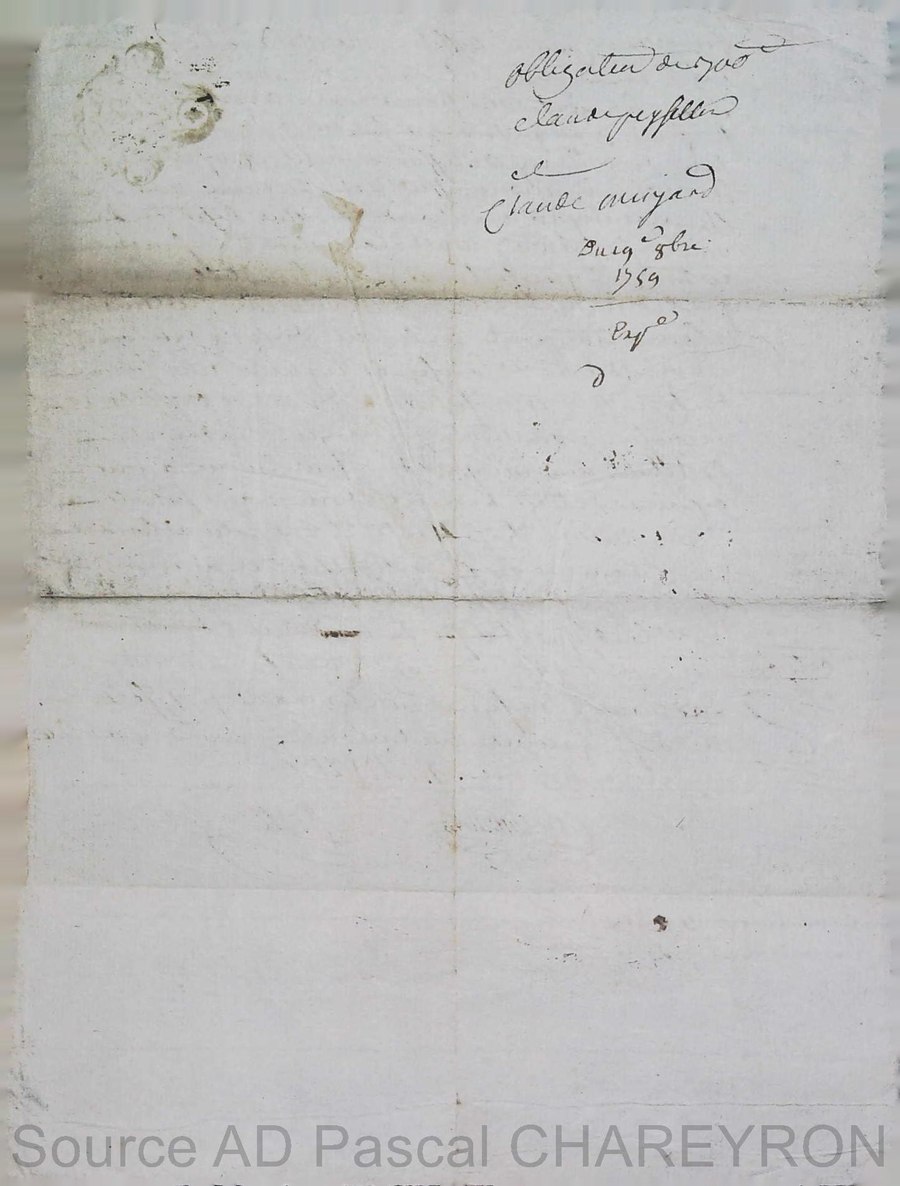 obligation de 700#
claude peyssellon
et
Claude muyard
Du 19e 8bre
1759
Expe
Source AD Pascal CHAREYRON